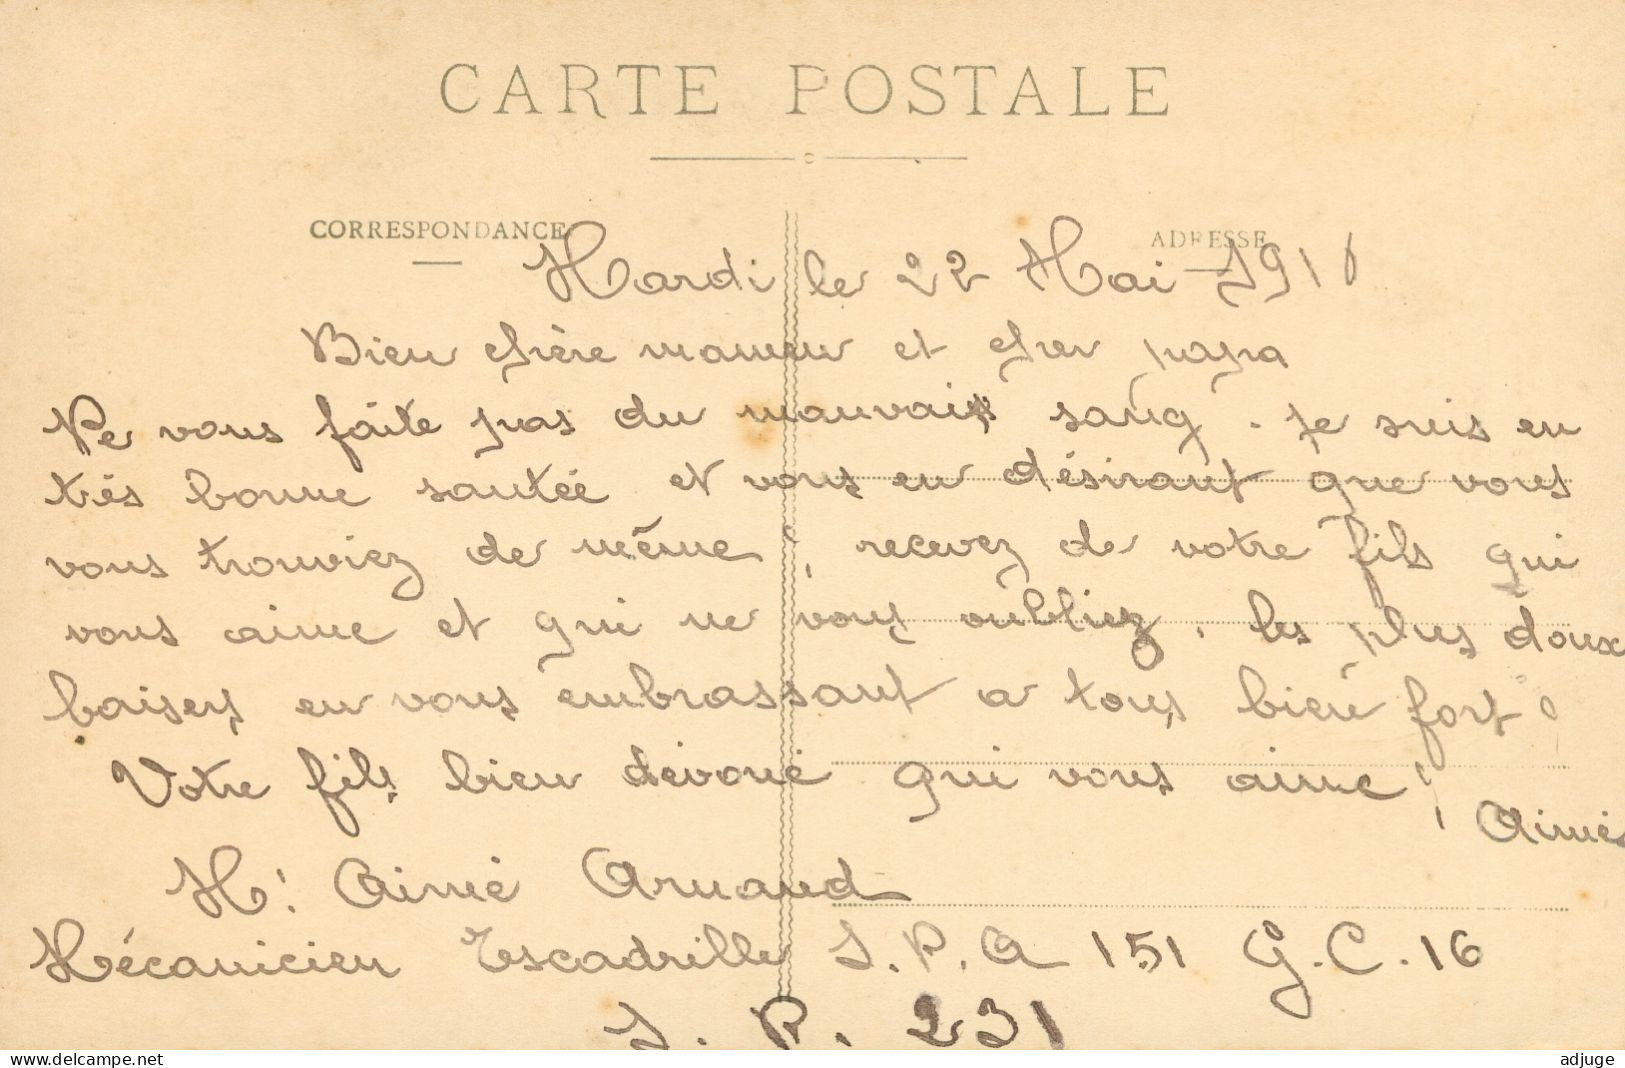 CARTE POSTALE
CORRESPONDANCE
ADRESSE
Mardi le 22 Mai 191
Bien chère maman et cher papa
Ne vous faite pas du mauvais sang. Je suis en
très bonne santée et vous en désirant que vous
vous trouviez de même, recevez de votre fils qui
vous aime et qui ne vous oubliez. les plus doux
baisers en vous embrassant a tous bien fort
Votre fils bien dévoué qui vous aime!
Aimé
M. Aimé Arnaud
Mécanicien Escadrille S.P.A 151 G.C.16
S.P. 231
www.delcampe.net
adjuge